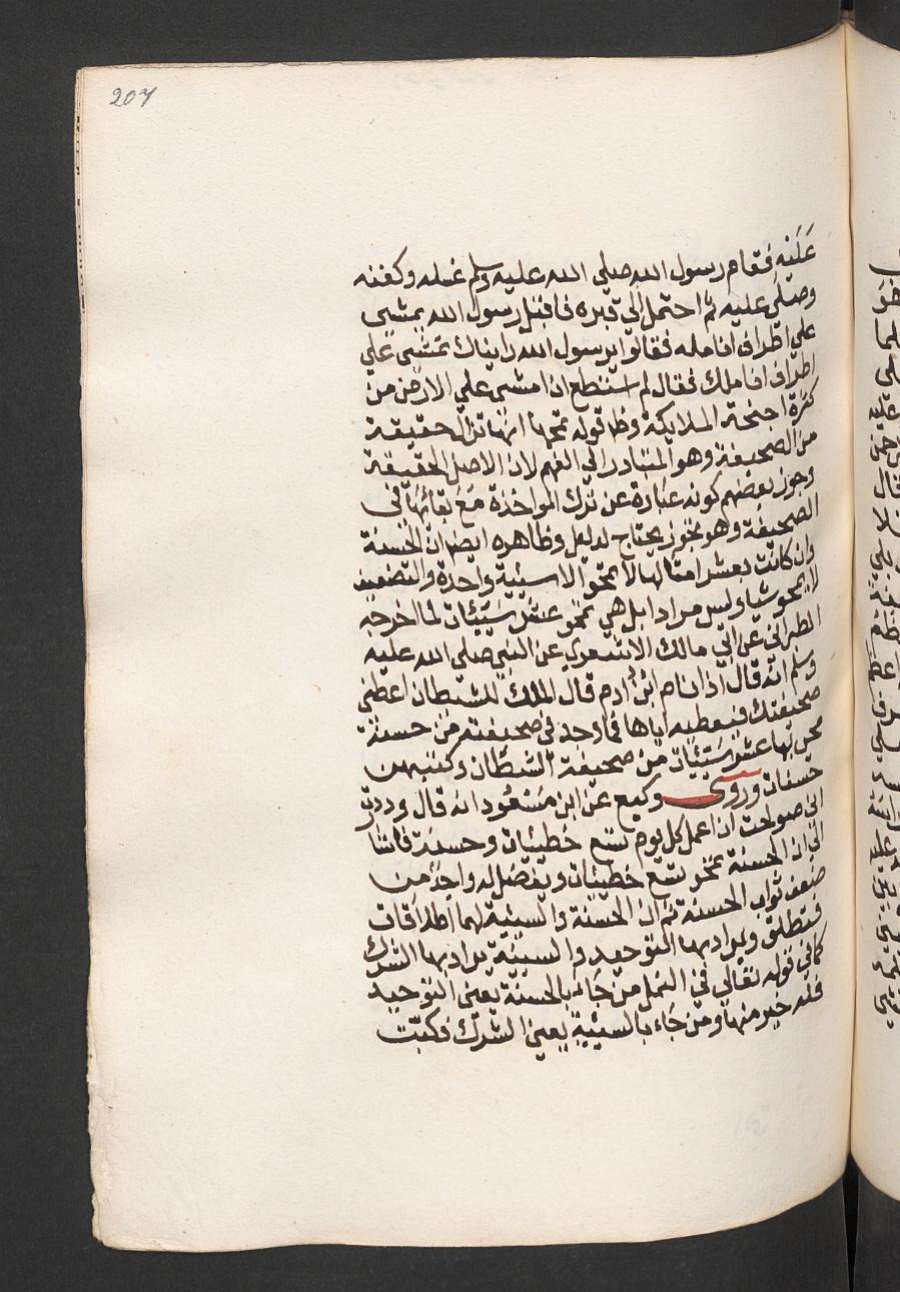 207
عليه فقام رسول الله صلي الله عليه وسلم غسله وكفنه
وصلي عليه ثم احتمل الي قبره فاقبل رسول الله يمشي
علي اطراف انامله فقالوا يرسول الله رايناك تمشي علي
اطراف اناملك فقال لم استطع ان امشي علي الارض من
كثرة اجنحة الملايكة وظ قوله تمحها انها تزال حقيقة
من الصحيفة وهو المتبادر الي الفهم لان الاصل الحقيقة
وجوز بعضهم كونه عبارة عن ترك المواخذة مع بقائها في
الصحيفة وهو تجوز يحتاج لدليل وظاهره ايضا ان الحسنة
وان كانت بعشر امثالها لا تمحو الا سيئة واحدة والتضعيف
لا يمحو شيا وليس مرادا بل هي تمحو عشر سيئات لما اخرجه
الطبراني عن ابي مالك الاشعري عن النبي صلي الله عليه
وسلم انه قال اذا نام ابن ادم قال الملك للشيطان اعطني
صحيفتك فيعطيه اياها فما وجد في صحيفته من حسنة
محي بها عشر سيئات من صحيفة الشيطان وكتبهن
حسنات وروي وكيع عن ابن مسعود انه قال وددت
اني صولحت ان اعمل كل يوم تسع خطيئات وحسنة فاشا
الي ان الحسنة تمحو تسع خطيئات ويفضل له واحد من
ضعف ثواب الحسنة ثم ان الحسنة والسيئة لهما اطلاقات
فتطلق ويراد بها التوحيد والسيئة يراد بها الشرك
كما في قوله تعالي في النمل من جاء بالحسنة يعني التوحيد
فله خير منها ومن جاء بالسيئة يعني الشرك فكبت